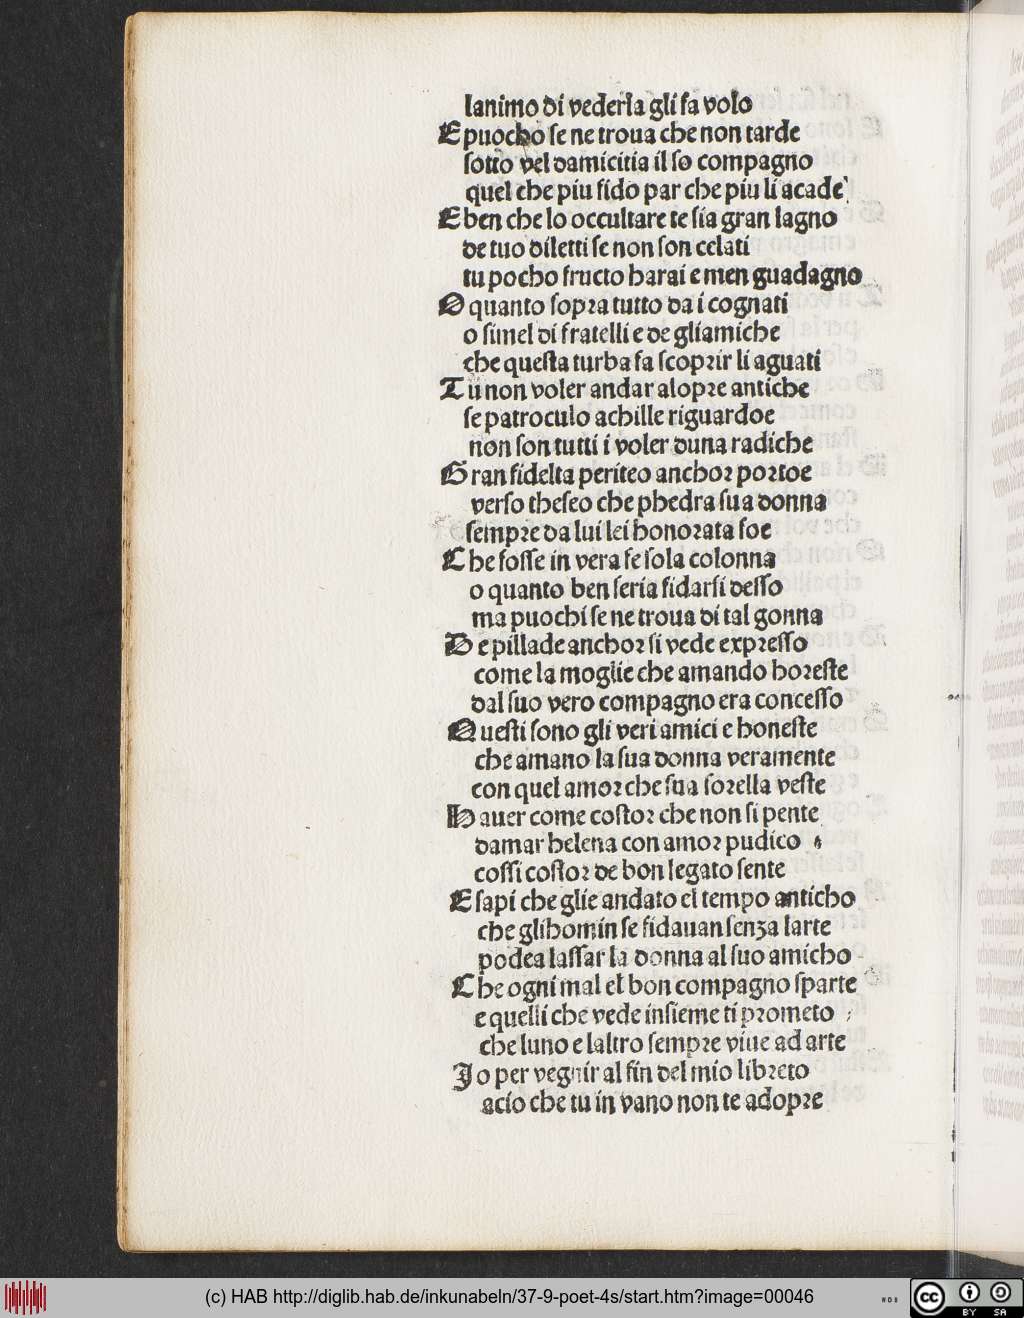 lanimo di vederla gli fa volo
E puocho se ne troua che non tarde
sotto vel damicitia il so compagno
quel che piu fido par che piu li acade
E ben che lo occultare te sia gran lagno
de tuo diletti se non son celati
tu pocho fructo harai e men guadagno
O quanto sopra tutto da i cognati
o simel di fratelli e de gliamiche
che questa turba fa scoprir li aguati
Tu non voler andar alopre antiche
se patroculo achille riguardoe
non son tutti i voler duna radiche
Gran fidelta periteo anchor portoe
verso theseo che phedra sua donna
sempre da lui lei honorata foe
Che fosse in vera fe sola colonna
o quanto ben seria fidarsi desso
ma puochi se ne troua di tal gonna
De pillade anchor si vede expresso
come la moglie che amando horeste
dal suo vero compagno era concesso
Questi sono gli veri amici e honeste
che amano la sua donna veramente
con quel amor che sua sorella veste
Hauer come costor che non si pente
damar helena con amor pudico
cossi costor de bon legato sente
E sapi che glie andato el tempo anticho
che glihomin se fidauan senza larte
podea lassar la donna al suo amicho
Che ogni mal el bon compagno sparte
e quelli che vede insieme ti prometo
che luno e laltro sempre viue ad arte
Io per vegnir al fin del mio libreto
acio che tu in vano non te adopre
(c) HAB http://diglib.hab.de/inkunabeln/37-9-poet-4s/start.htm?image=00046
cc BY SA